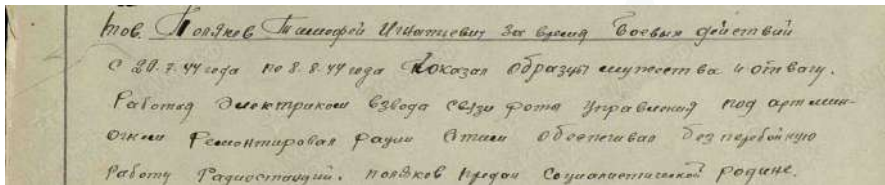 тов. Поляков Тимофей Игнатьевич за время боевых действий
С 20.7.44 года по 8.8.44 года показал образцы мужества и отвагу.
Работая электриком взвода связи роты управления под арт мин-
огнем ремонтировал рации этим обеспечивал безперебойную
работу радиостанций. поляков предан социалистической родине.